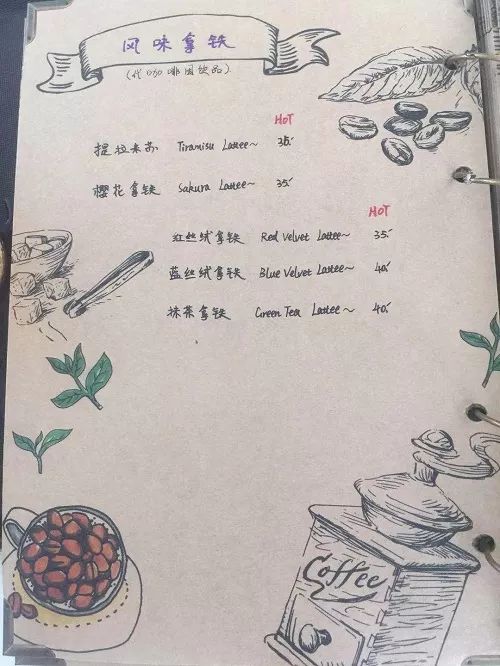 风味拿铁
(代咖啡因饮品)
HOT
提拉米苏 Tiramisu Lattee~ 35.
樱花拿铁 Sakura Lattee~ 35.
HOT
红丝绒拿铁 Red Velvet Lattee~ 35.
蓝丝绒拿铁 Blue Velvet Lattee~ 40.
抹茶拿铁 Green Tea Lattee~ 40.
Coffee